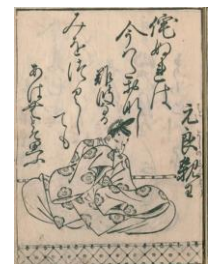 元良親王
侘ぬれは
今はた
難波
みをつくし
ても
あはむとそ思ふ